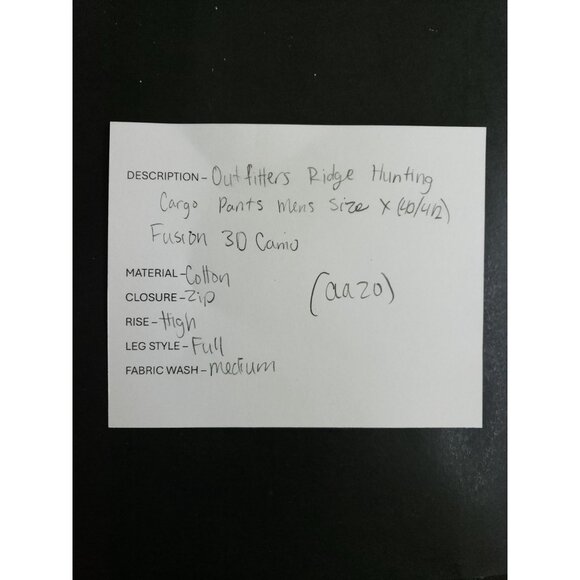 DESCRIPTION - Outfitters Ridge Hunting
Cargo Pants Mens Size X (40/42)
Fusion 3D Camo
MATERIAL - Cotton
CLOSURE - Zip
(aa20)
RISE - High
LEG STYLE - Full
FABRIC WASH - Medium